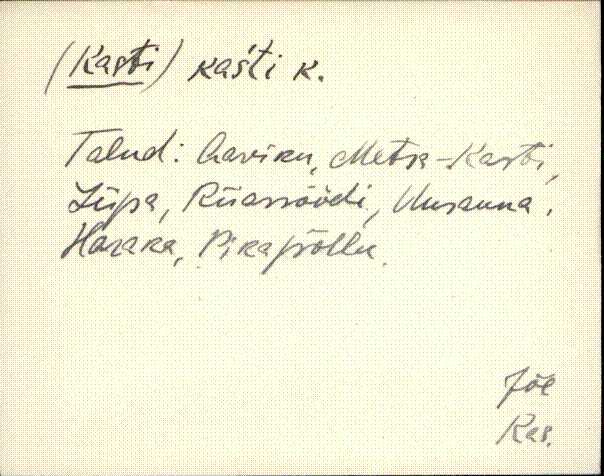 (Kasti) kaśti k.
Talud: Aaviku, Metsa-Kasti,
Liipa, Riiassöödi, Uusauna,
Haraka, Pikapõllu.
Jõe
Kas.